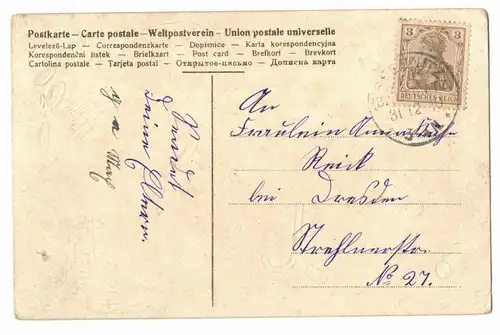 Postkarte – Carte postale – Weltpostverein – Union postale universelle
Levelező-Lap — Correspondenzkarte — Dopisnice — Karta korespondencyjna
Korespondenční listek — Briefkaart — Post card — Brefkort — Brevkort
Cartolina postale — Tarjeta postal — Открытое-письмо — Дописна карта
3 3
DEUTSCHES REICH
31 12
An
Fräulein
Reick
bei Dresden
Strehlnerstr.
No 27.
Deine Eltern